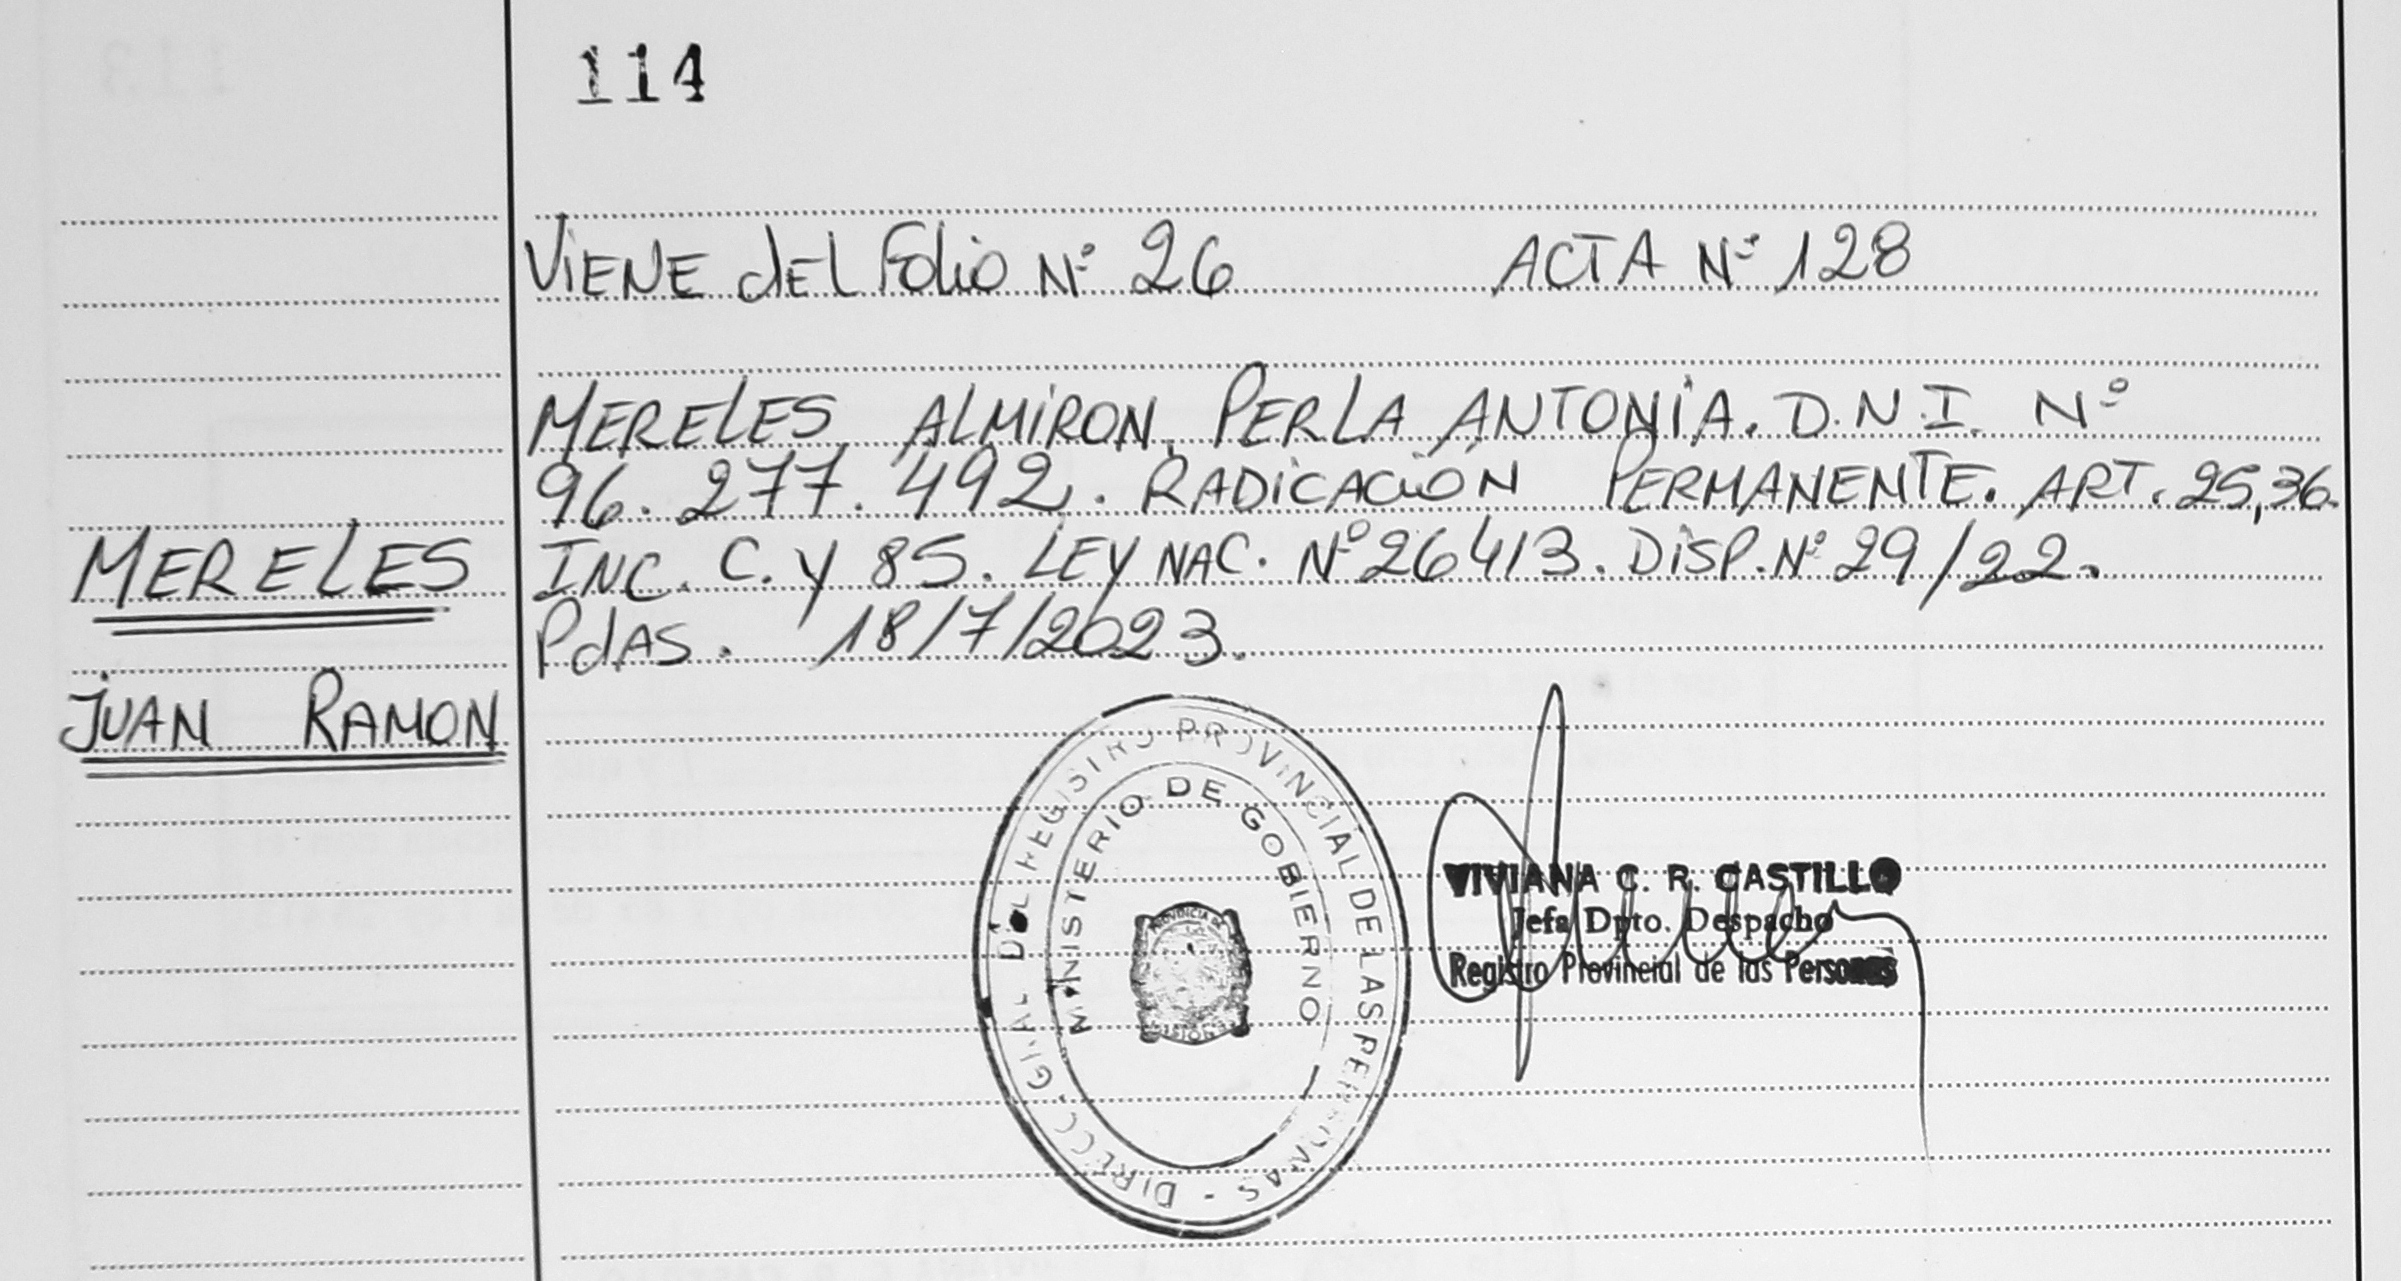 114
VIENE dEL Folio Nº 26 ACTA Nº 128
MERELES ALMIRON, PERLA ANTONIA. D.N.I. Nº
96.277.492. RADICACIÓN PERMANENTE. ART. 25,36.
INC. C. Y 85. LEY NAC. Nº 26413. DISP. Nº 29/22.
PdAS. 18/7/2023.
MERELES
JUAN RAMON
DIRECC. GRAL DEL REGISTRO PROVINCIAL DE LAS PERSONAS -
MINISTERIO DE GOBIERNO
PROVINCIA DE
MISIONES
VIVIANA C. R. CASTILLO
Jefa Dpto. Despacho
Registro Provincial de las Personas